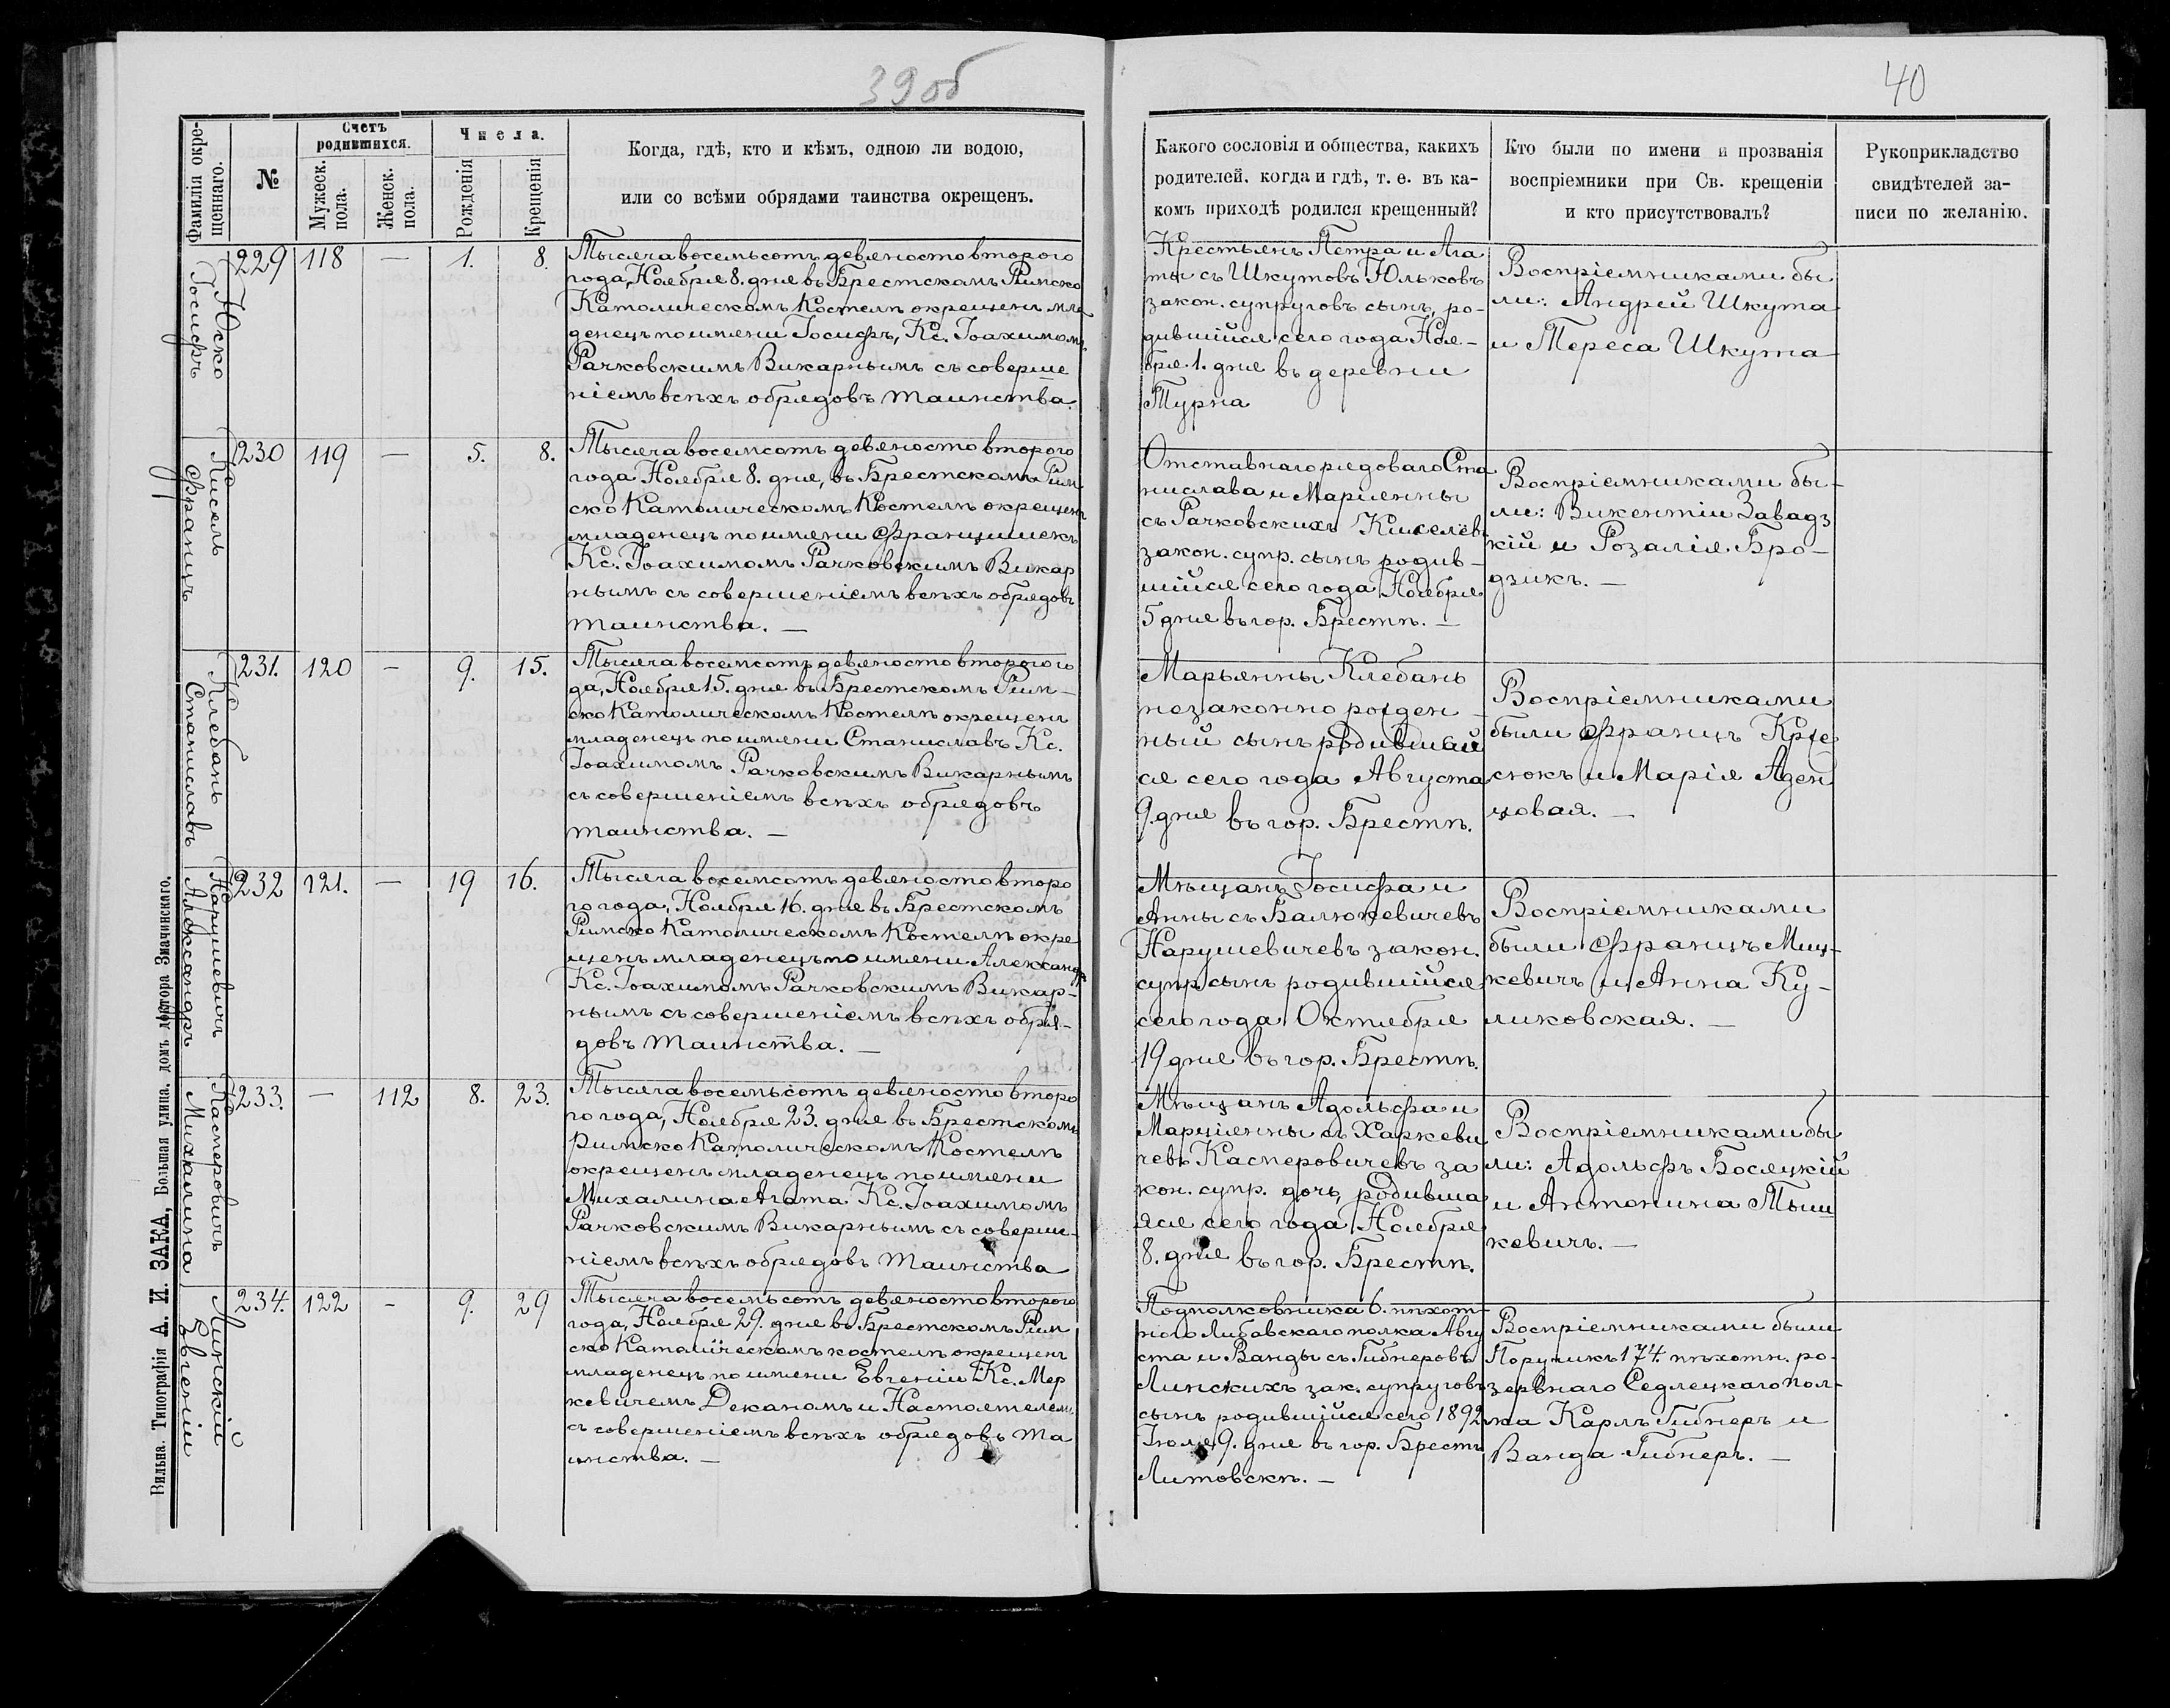 39 об
40
Фамиліи окре-
щеннаго.
№
Счетъ
родившихся.
Мужеск.
пола.
Женск.
пола.
Числа.
Рожденія
Крещенія
Когда, гдѣ, кто и кѣмъ, одною ли водою,
или со всѣми обрядами таинства окрещенъ.
Какого сословія и общества, какихъ
родителей, когда и гдѣ, т. е. въ ка-
комъ приходѣ родился крещенный?
Кто были по имени и прозванія
воспріемники при Св. крещеніи
и кто присутствовалъ?
Рукоприкладство
свидѣтелей за-
писи по желанію.
Юско
Іосифъ
229 118 — 1. 8.
Тысяча восемьсотъ девяносто второго
года, Ноября 8. дня въ Брестскомъ Римско
Католическомъ Костелѣ окрещенъ мла
денецъ по имени Іосифъ, Кс. Іоахимомъ
Рачковскимъ Викарнымъ съ соверше
ніемъ всѣхъ обрядовъ таинства.
Крестьянъ Петра и Ага
ты съ Шкутовъ Юльковъ
закон. супруговъ сынъ, ро-
дившійся сего года Ноя-
бря 1. дня въ деревни
Турна
Воспріемниками бы
ли: Андрей Шкута
и Тереса Шкута
Кисель
Францъ
230 119 — 5. 8.
Тысяча восемсотъ девяносто второго
года Ноября 8. дня, въ Брестскомъ Рим
ско Католическомъ Костелѣ окрещенъ
младенецъ по имени Францишекъ
Кс. Іоахимомъ Рачковскимъ Викар
нымъ съ совершеніемъ всѣхъ обрядовъ
таинства. —
Отставнаго рядоваго Ста
нислава и Маріянны
съ Рачковскихъ Киселёвъ
закон. супр. сынъ родив-
шійся сего года Ноября
5 дня въ гор. Брестѣ. —
Воспріемниками бы-
ли: Викентіи Завадз
кій и Розалія Бро-
дзикъ. —
Клебанъ
Станиславъ
231. 120 — 9. 15.
Тысяча восемсотъ девяносто второго го
да, Ноября 15. дня въ Брестскомъ Рим-
ско Католическомъ Костелѣ окрещенъ
младенецъ по имени Станиславъ Кс.
Іоахимомъ Рачковскимъ Викарнымъ
съ совершеніемъ всѣхъ обрядовъ
таинства. —
Марьянны Клебанъ
незаконно рожден
ный сынъ родившай
ся сего года Августа
9. дня въ гор. Брестѣ.
Воспріемниками
были Францъ
сюкъ и Марія Аден
цовая. —
Нарушевичъ
Александръ
232 121. — 19 16.
Тысяча восемсотъ девяносто второ
го года, Ноября 16. дня въ Брестскомъ
Римско Католическомъ Костелѣ окре
щенъ младенецъ по имени Александръ
Кс. Іоахимомъ Рачковскимъ Викар-
нымъ съ совершеніемъ всѣхъ обря-
довъ таинства. —
Мѣщанъ Іосифа и
Анны съ Балюкевичевъ
Нарушевичевъ закон.
супр. сынъ родившійся
сего года Октября
19 дня въ гор. Брестѣ.
Воспріемниками
были Францъ Миц-
кевичъ и Анна Ку-
ликовская. —
Касперовичъ
Михалина
233. — 112 8. 23.
Тысяча восемьсотъ девяносто второ
го года, Ноября 23. дня въ Брестскомъ
Римско Католическомъ Костелѣ
окрещенъ младенецъ по имени
Михалина Агата Кс. Іоахимомъ
Рачковскимъ Викарнымъ съ соверше-
ніемъ всѣхъ обрядовъ таинства
Мѣщанъ Адольфа и
Марціянны съ Харкеви
чевъ Касперовичевъ за
кон. супр. дочь, родивша
яся сего года Ноября
8. дня въ гор. Брестѣ.
Воспріемниками бы
ли: Адольфъ Босяцкій
и Антонина Тыш
кевичъ. —
Линскій
Евгеніи
234. 122 - 9. 29
Тысяча восемьсотъ девяносто второго
года, Ноября 29. дня въ Брестскомъ Рим
ско Католическомъ костелѣ окрещенъ
младенецъ по имени Евгеніи Кс. Мер
кевичемъ Деканомъ и Настоятелемъ
съ совершеніемъ всѣхъ обрядовъ та
инства. —
Подполковника 6. пѣхот-
наго Либавскаго полка Авгу
ста и Ванды съ Гибнеровъ
Линскихъ зак. супруговъ
сынъ родившійся сего 1892
Іюля 9. дня въ гор. Брестѣ
Литовскѣ. —
Воспріемниками были
Поручикъ 174. пѣхотн. ре-
зервнаго Седлецкаго пол-
ка Карлъ Гибнеръ и
Ванда Гибнеръ. —
Вильна. Типографія А. И. ЗАКА, Большая улица, домъ доктора Змачинскаго.